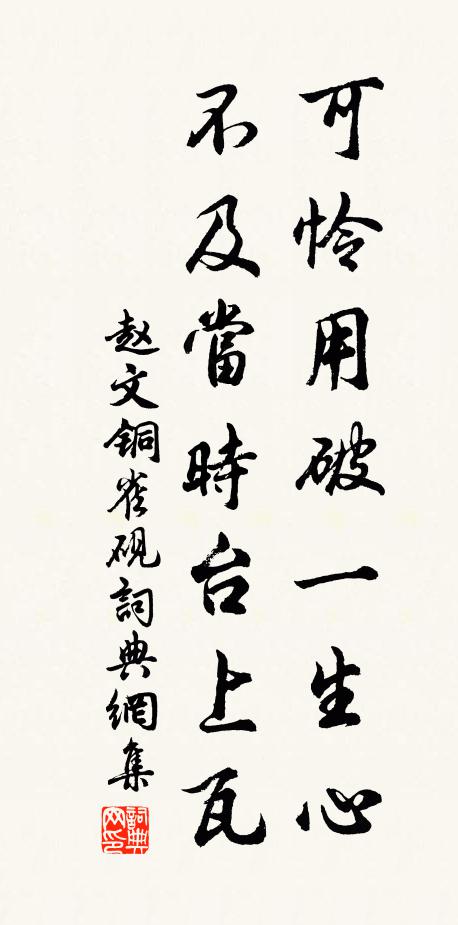 可怜用破一生心
不及當時台上瓦
赵文铜雀砚詞典網集
詞典网印